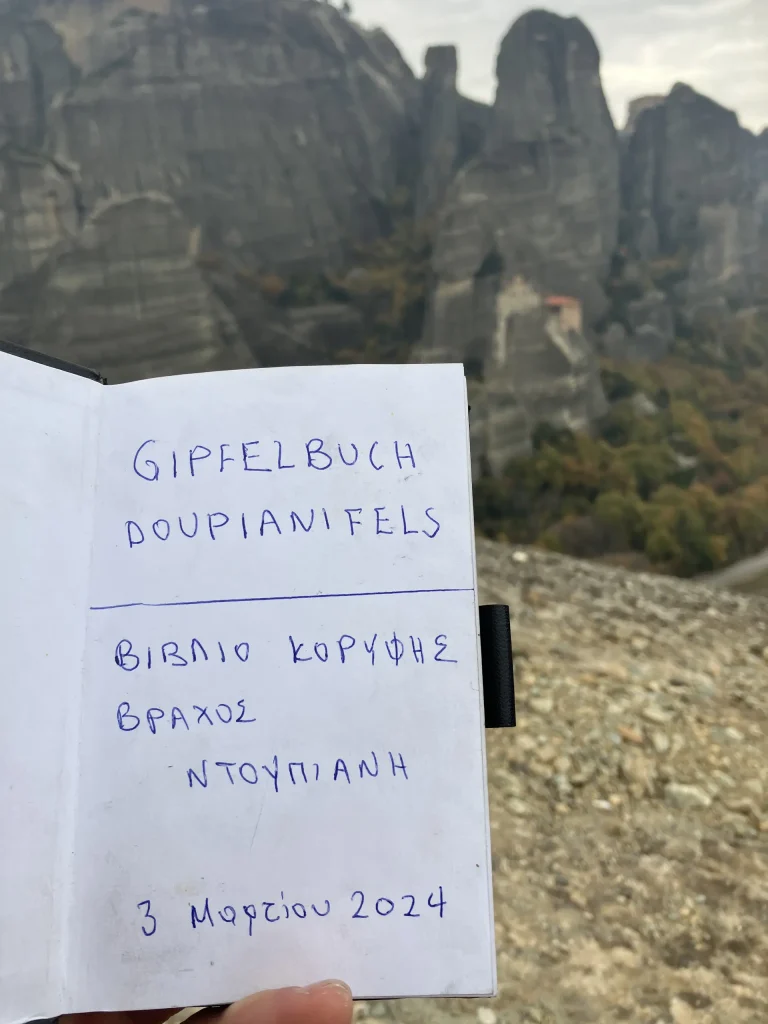 GIPFELBUCH
DOUPIANIFELS
ΒΙΒΛΙΟ ΚΟΡΥΦΗΣ
ΒΡΑΧΟΣ
ΝΤΟΥΠΙΑΝΗ
3 Μαρτίου 2024